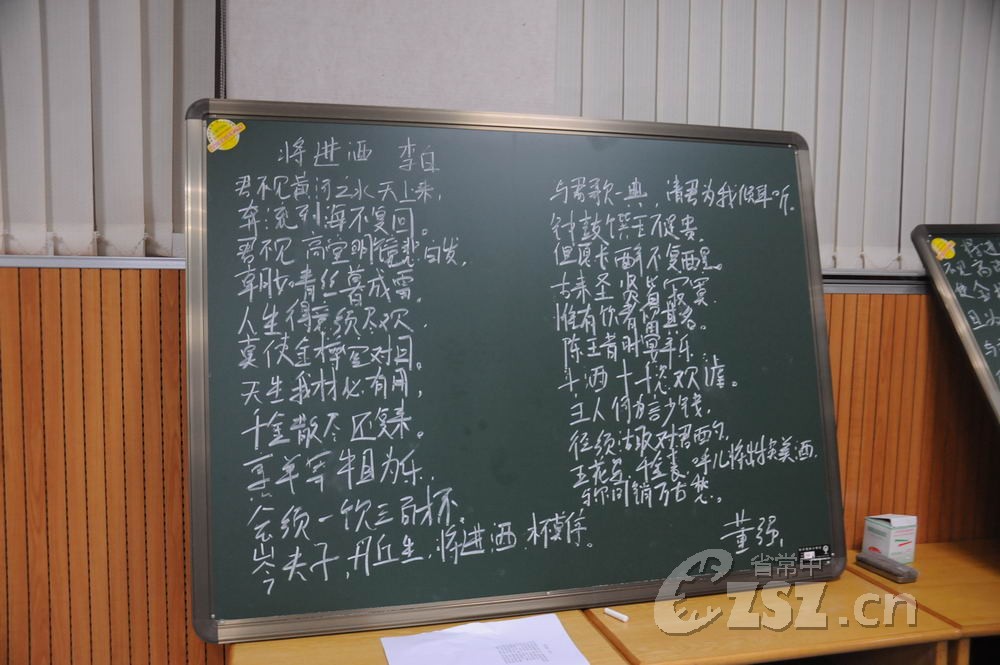 将进酒 李白
君不见黄河之水天上来，
奔流到海不复回。
君不见高堂明镜悲白发，
朝如青丝暮成雪。
人生得意须尽欢，
莫使金樽空对月。
天生我材必有用，
千金散尽还复来。
烹羊宰牛且为乐，
会须一饮三百杯。
岑夫子，丹丘生，将进酒，杯莫停。
与君歌一曲，请君为我倾耳听。
钟鼓馔玉不足贵，
但愿长醉不复醒。
古来圣贤皆寂寞，
惟有饮者留其名。
陈王昔时宴平乐，
斗酒十千恣欢谑。
主人何为言少钱，
径须沽取对君酌。
五花马，千金裘，呼儿将出换美酒，
与尔同销万古愁。
董强
省常中
CZSZ.cn